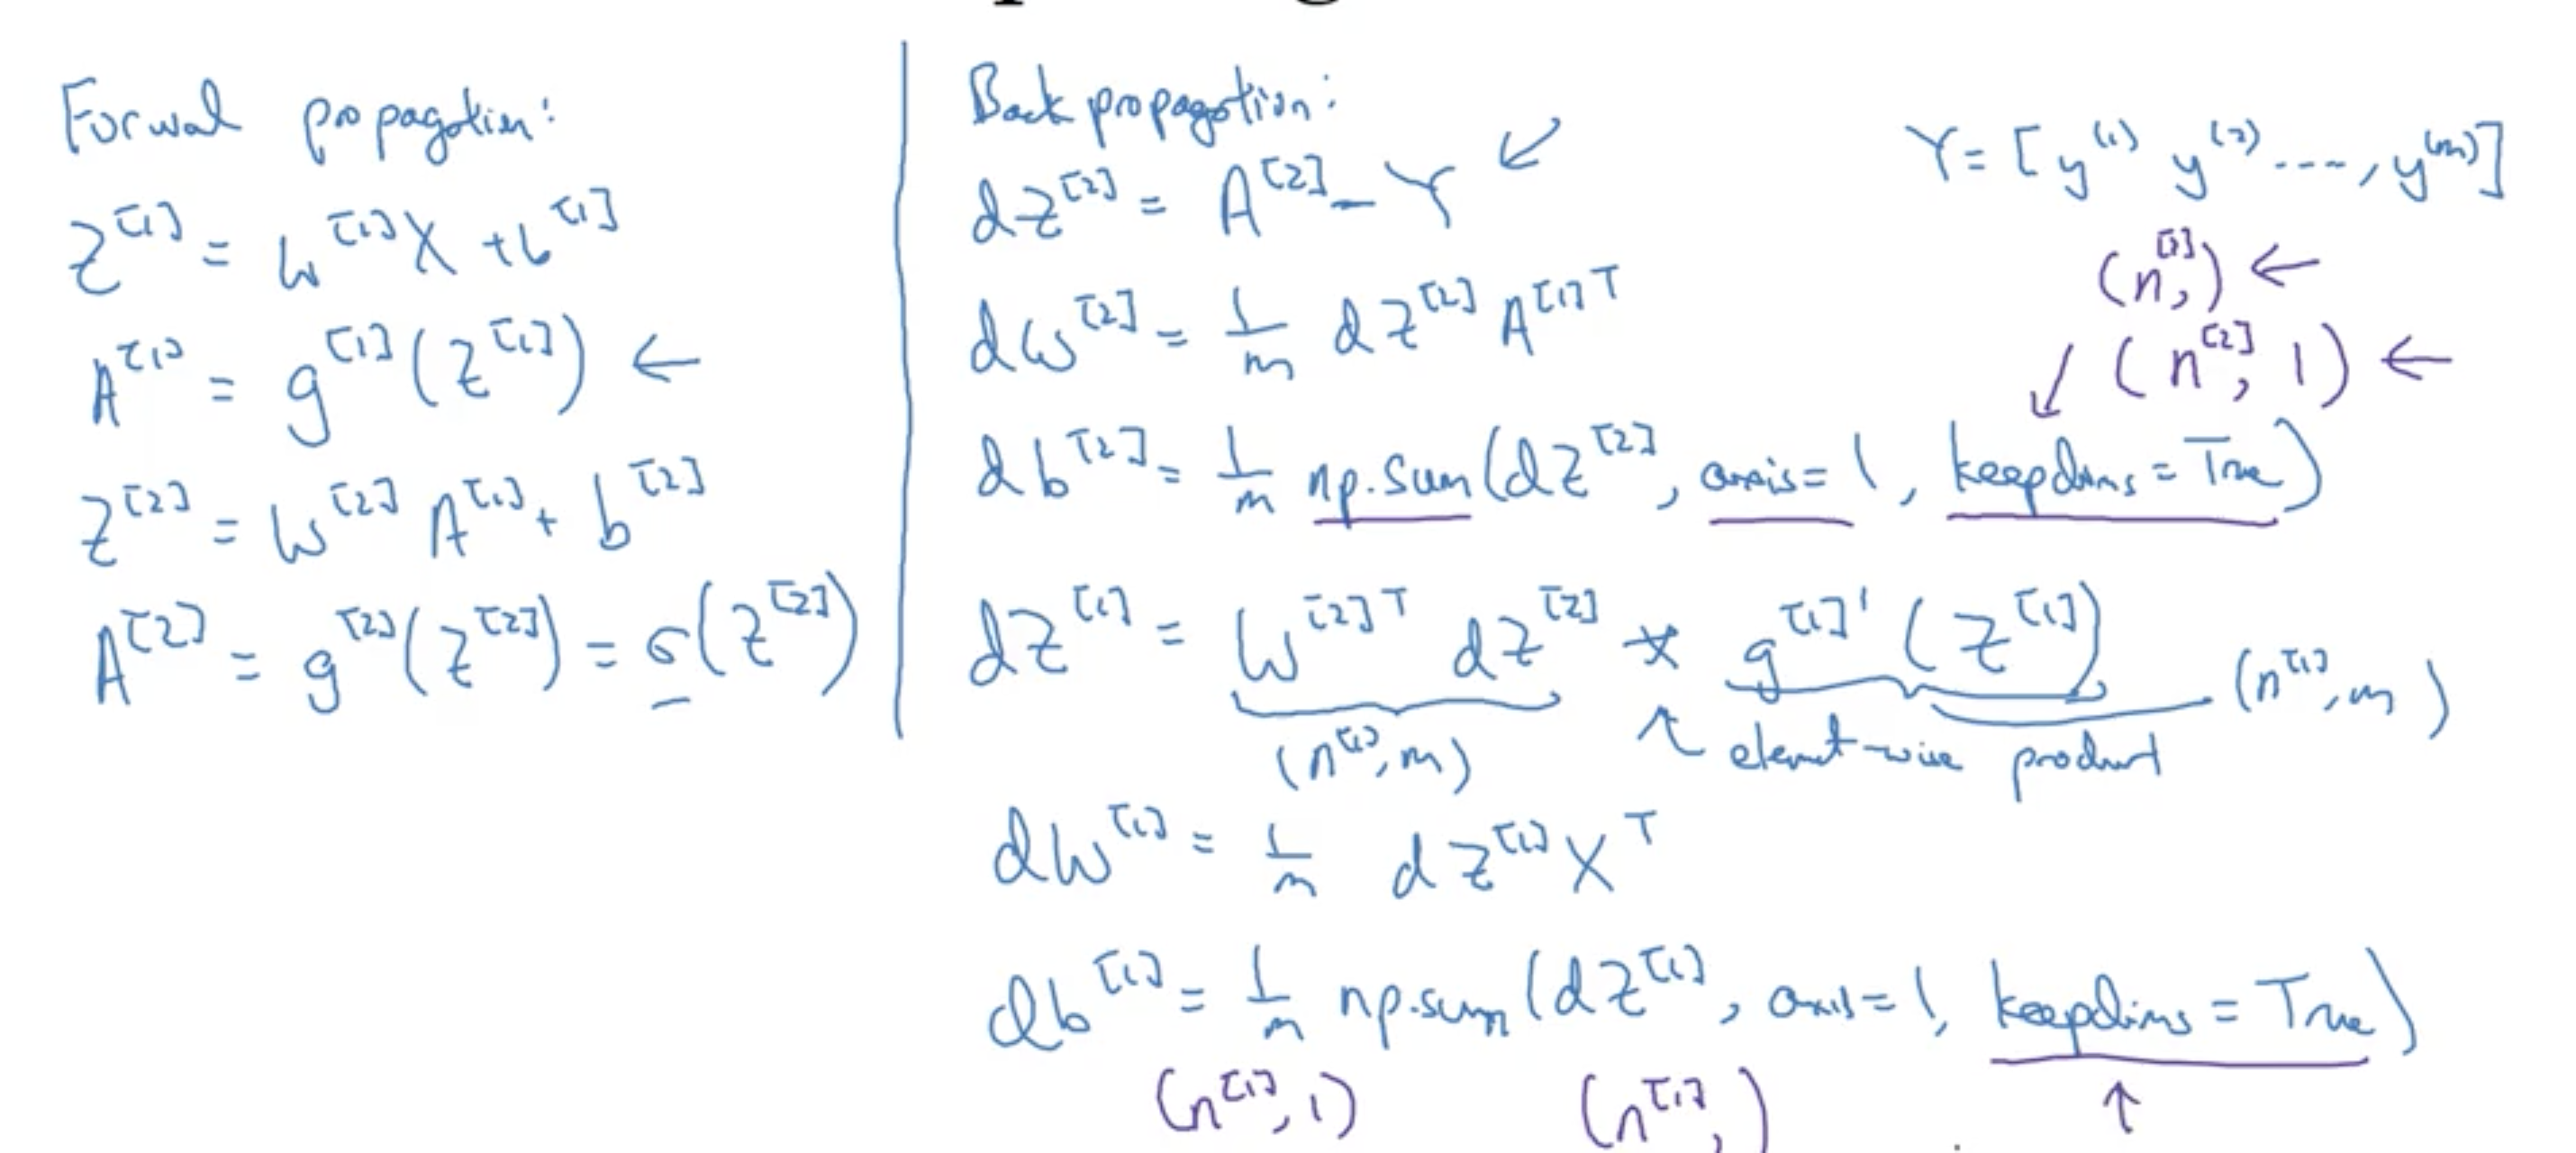 Forward propagation:
Z^[1] = W^[1] X + b^[1]
A^[1] = g^[1](Z^[1]) ←
Z^[2] = W^[2] A^[1] + b^[2]
A^[2] = g^[2](Z^[2]) = σ(Z^[2])
Back propagation:
dZ^[2] = A^[2] - Y ↙
Y = [y^(1) y^(2) ...., y^(m)]
dW^[2] = 1/m dZ^[2] A^[1]T
(n^[2],) ←
↓ (n^[2], 1) ←
db^[2] = 1/m np.sum(dZ^[2], axis=1, keepdims=True)
dZ^[1] = W^[2]T dZ^[2] * g^[1]'(Z^[1])
(n^[1], m)
↖ element-wise product
(n^[1], m)
dW^[1] = 1/m dZ^[1] X^T
db^[1] = 1/m np.sum(dZ^[1], axis=1, keepdims=True)
(n^[1], 1) (n^[1],) ↑